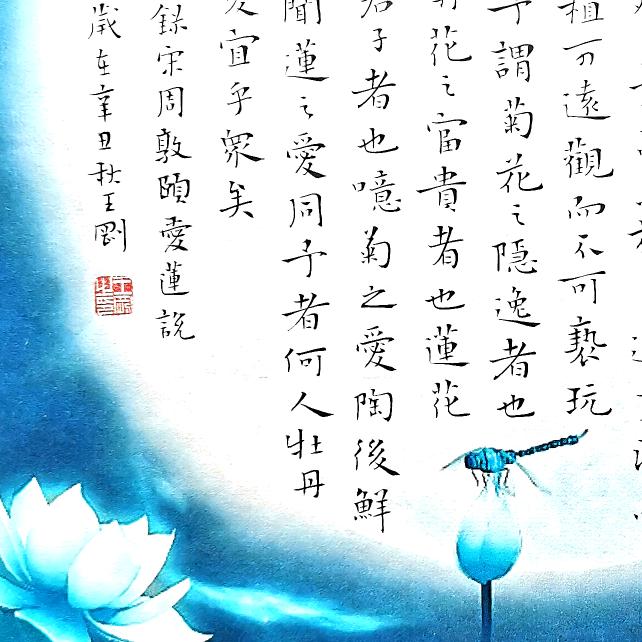 植可遠觀而不可褻玩
予謂菊花之隱逸者也
花之富貴者也蓮花
君子者也噫菊之愛陶後鮮
聞蓮之愛同予者何人牡丹
宜乎衆矣
錄宋周敦頤愛蓮說
歲在辛丑秋王剛